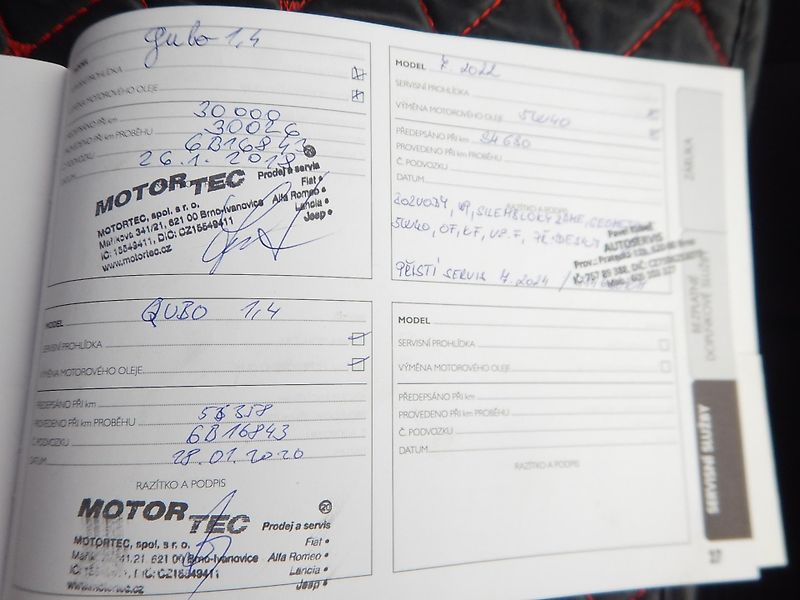 Qubo 1,4
SERVISNÍ PROHLÍDKA
VÝMĚNA MOTOROVÉHO OLEJE
PŘEDEPSÁNO PŘI km 30 000
PROVEDENO PŘI km PROBĚHU 30026
Č. PODVOZKU 6B16843
DATUM 26.1.2018
MOTOR TEC
Prodej a servis
Fiat •
Alfa Romeo •
Lancia •
Jeep •
MOTORTEC, spol. s r. o.
Maříkova 341/21, 621 00 Brno-Ivanovice
IČ: 15549411, DIČ: CZ15549411
www.motortec.cz
MODEL QUBO 1,4
SERVISNÍ PROHLÍDKA
VÝMĚNA MOTOROVÉHO OLEJE
PŘEDEPSÁNO PŘI km
PROVEDENO PŘI km PROBĚHU 56358
Č. PODVOZKU 6B16843
DATUM 28.01.2020
RAZÍTKO A PODPIS
MOTOR TEC
Prodej a servis
Fiat •
Alfa Romeo •
Lancia •
Jeep •
MOTORTEC, spol. s r. o.
621 00 Brno-Ivanovice
DIČ: CZ15549411
www.motortec.cz
MODEL 7. 2022
SERVISNÍ PROHLÍDKA
VÝMĚNA MOTOROVÉHO OLEJE 5W40
PŘEDEPSÁNO PŘI km 84630
PROVEDENO PŘI km PROBĚHU
Č. PODVOZKU
DATUM
RAZÍTKO A PODPIS
ROZVODY, VP, SILEMBLOKY
5W40, OF, KF, VZ.F,
PŘÍŠTÍ SERVIS 7.2024
Pavel
AUTOSERVIS
MODEL
SERVISNÍ PROHLÍDKA
VÝMĚNA MOTOROVÉHO OLEJE
PŘEDEPSÁNO PŘI km
PROVEDENO PŘI km PROBĚHU
Č. PODVOZKU
DATUM
RAZÍTKO A PODPIS
ZÁRUKA
BEZPLATNÉ
DOPLŇKOVÉ SLUŽBY
SERVISNÍ SLUŽBY